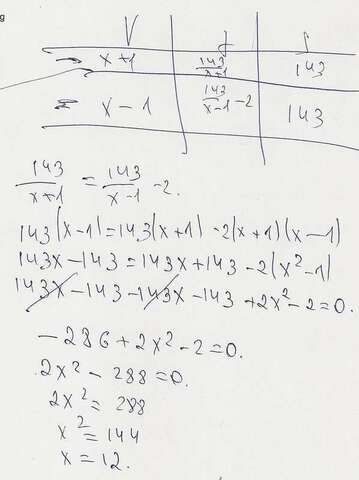 g
V t S
→ x+1 143/(x+1) 143
← x−1 143/(x−1) −2 143
143/(x+1) = 143/(x−1) −2.
143(x−1)=143(x+1) −2(x+1)(x−1)
143x−143=143x+143−2(x²−1)
143x−143−143x−143+2x²−2=0.
−286+2x²−2=0.
2x²−288=0.
2x²=288
x²=144
x=12.